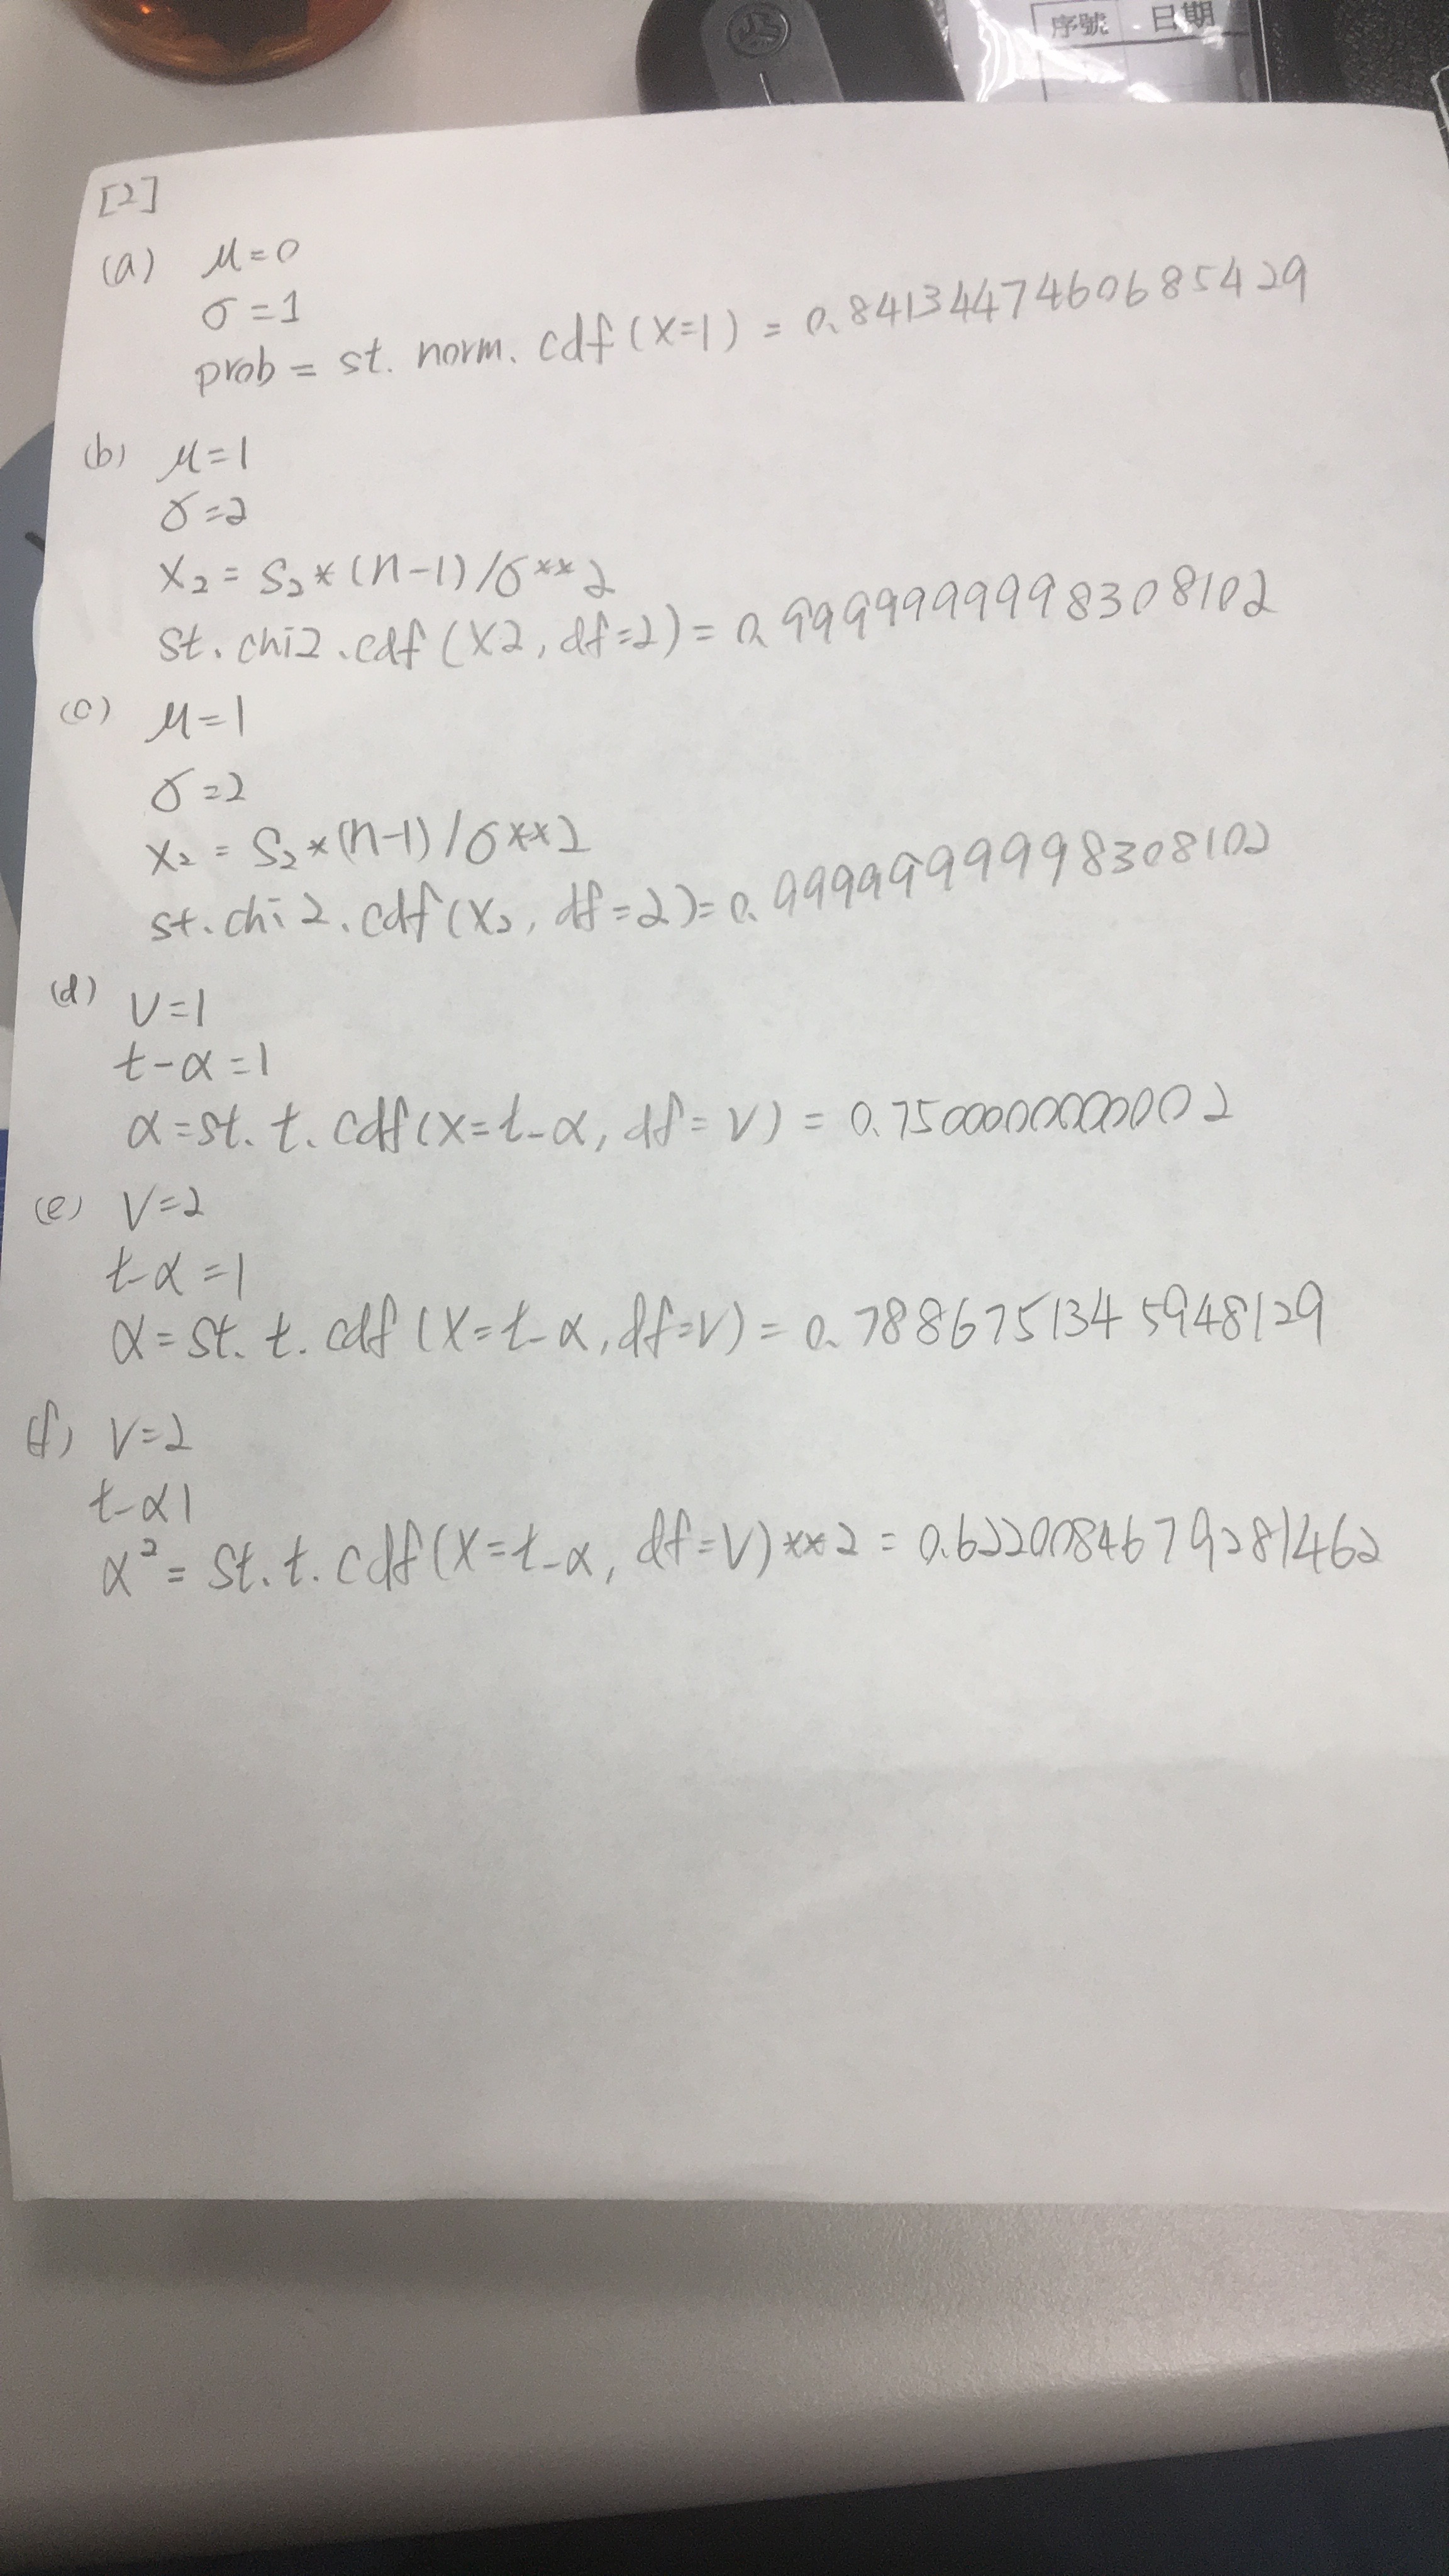 序號 日期
[2]
(a) μ=0
σ=1
prob = st. norm. cdf(x=1) = 0.8413447460685429
(b) μ=1
σ=2
X₂ = S₂*(n-1)/σ**2
st. chi2.cdf(X2, df=2) = 0.9999999998308102
(c) μ=1
σ=2
X₂ = S₂*(n-1)/σ**2
st.chi2.cdf(X₂, df=2)=0.9999999998308102
(d) V=1
t-α=1
α=st. t. cdf(x=t-α, df=V) = 0.750000000000002
(e) V=2
t-α=1
α=st. t. cdf(X=t-α, df=V) = 0.7886751345948129
(f) V=2
t-α1
α² = st. t. cdf(X=t-α, df=V)**2 = 0.6220084679281462